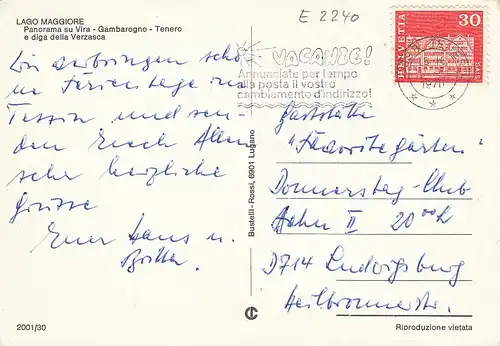 E 2240
LAGO MAGGIORE
Panorama su Vira - Gambarogno - Tenero
e diga della Verzasca
Wir verbringen schö-
ne Ferientage im
Tessin und sen-
den Euch Allen
sehr herzliche
Grüsse
Euer Hans u.
VACANZE!
Annunciate per tempo
alla posta il vostro
cambiamento d'indirizzo!
HELVETIA
30
Gaststätte
"Favoritegärten"
Donnerstag-Club
Bahn II 20 00 h
D714 Ludwigsburg
Heilbronnerstr.
Busbelli-Rossi, 6901 Lugano
2001/30
Riproduzione vietata